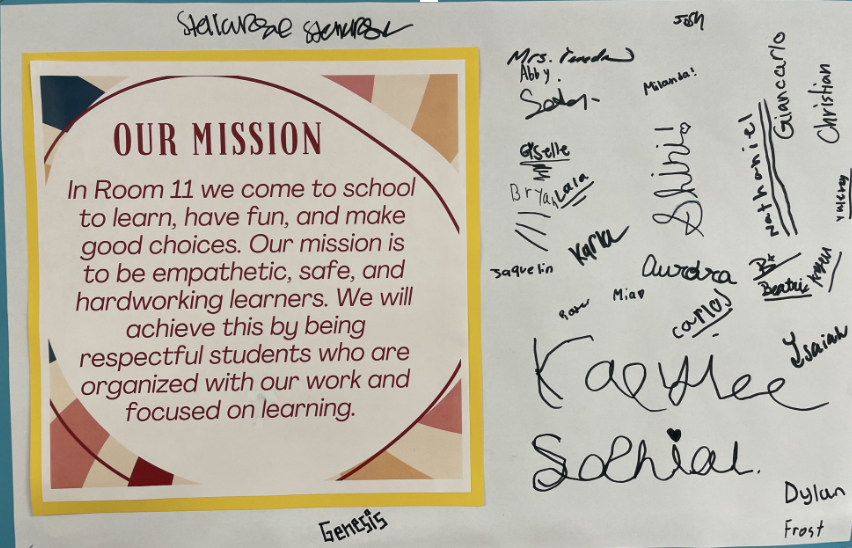 Josh
OUR MISSION
In Room 11 we come to school
to learn, have fun, and make
good choices. Our mission is
to be empathetic, safe, and
hardworking learners. We will
achieve this by being
respectful students who are
organized with our work and
focused on learning.
Mrs.
Abby.
Milanda!
Giancarlo
Christian
Nathaniel
Giselle
Shiki!
Bryan
Lala
Karla
Jaquelin
Aurora
B*
Beatriz
Karen
Mia
Carlos
Isaiah
Kaeylee
Sophia
Dylan
Frost
Genesis